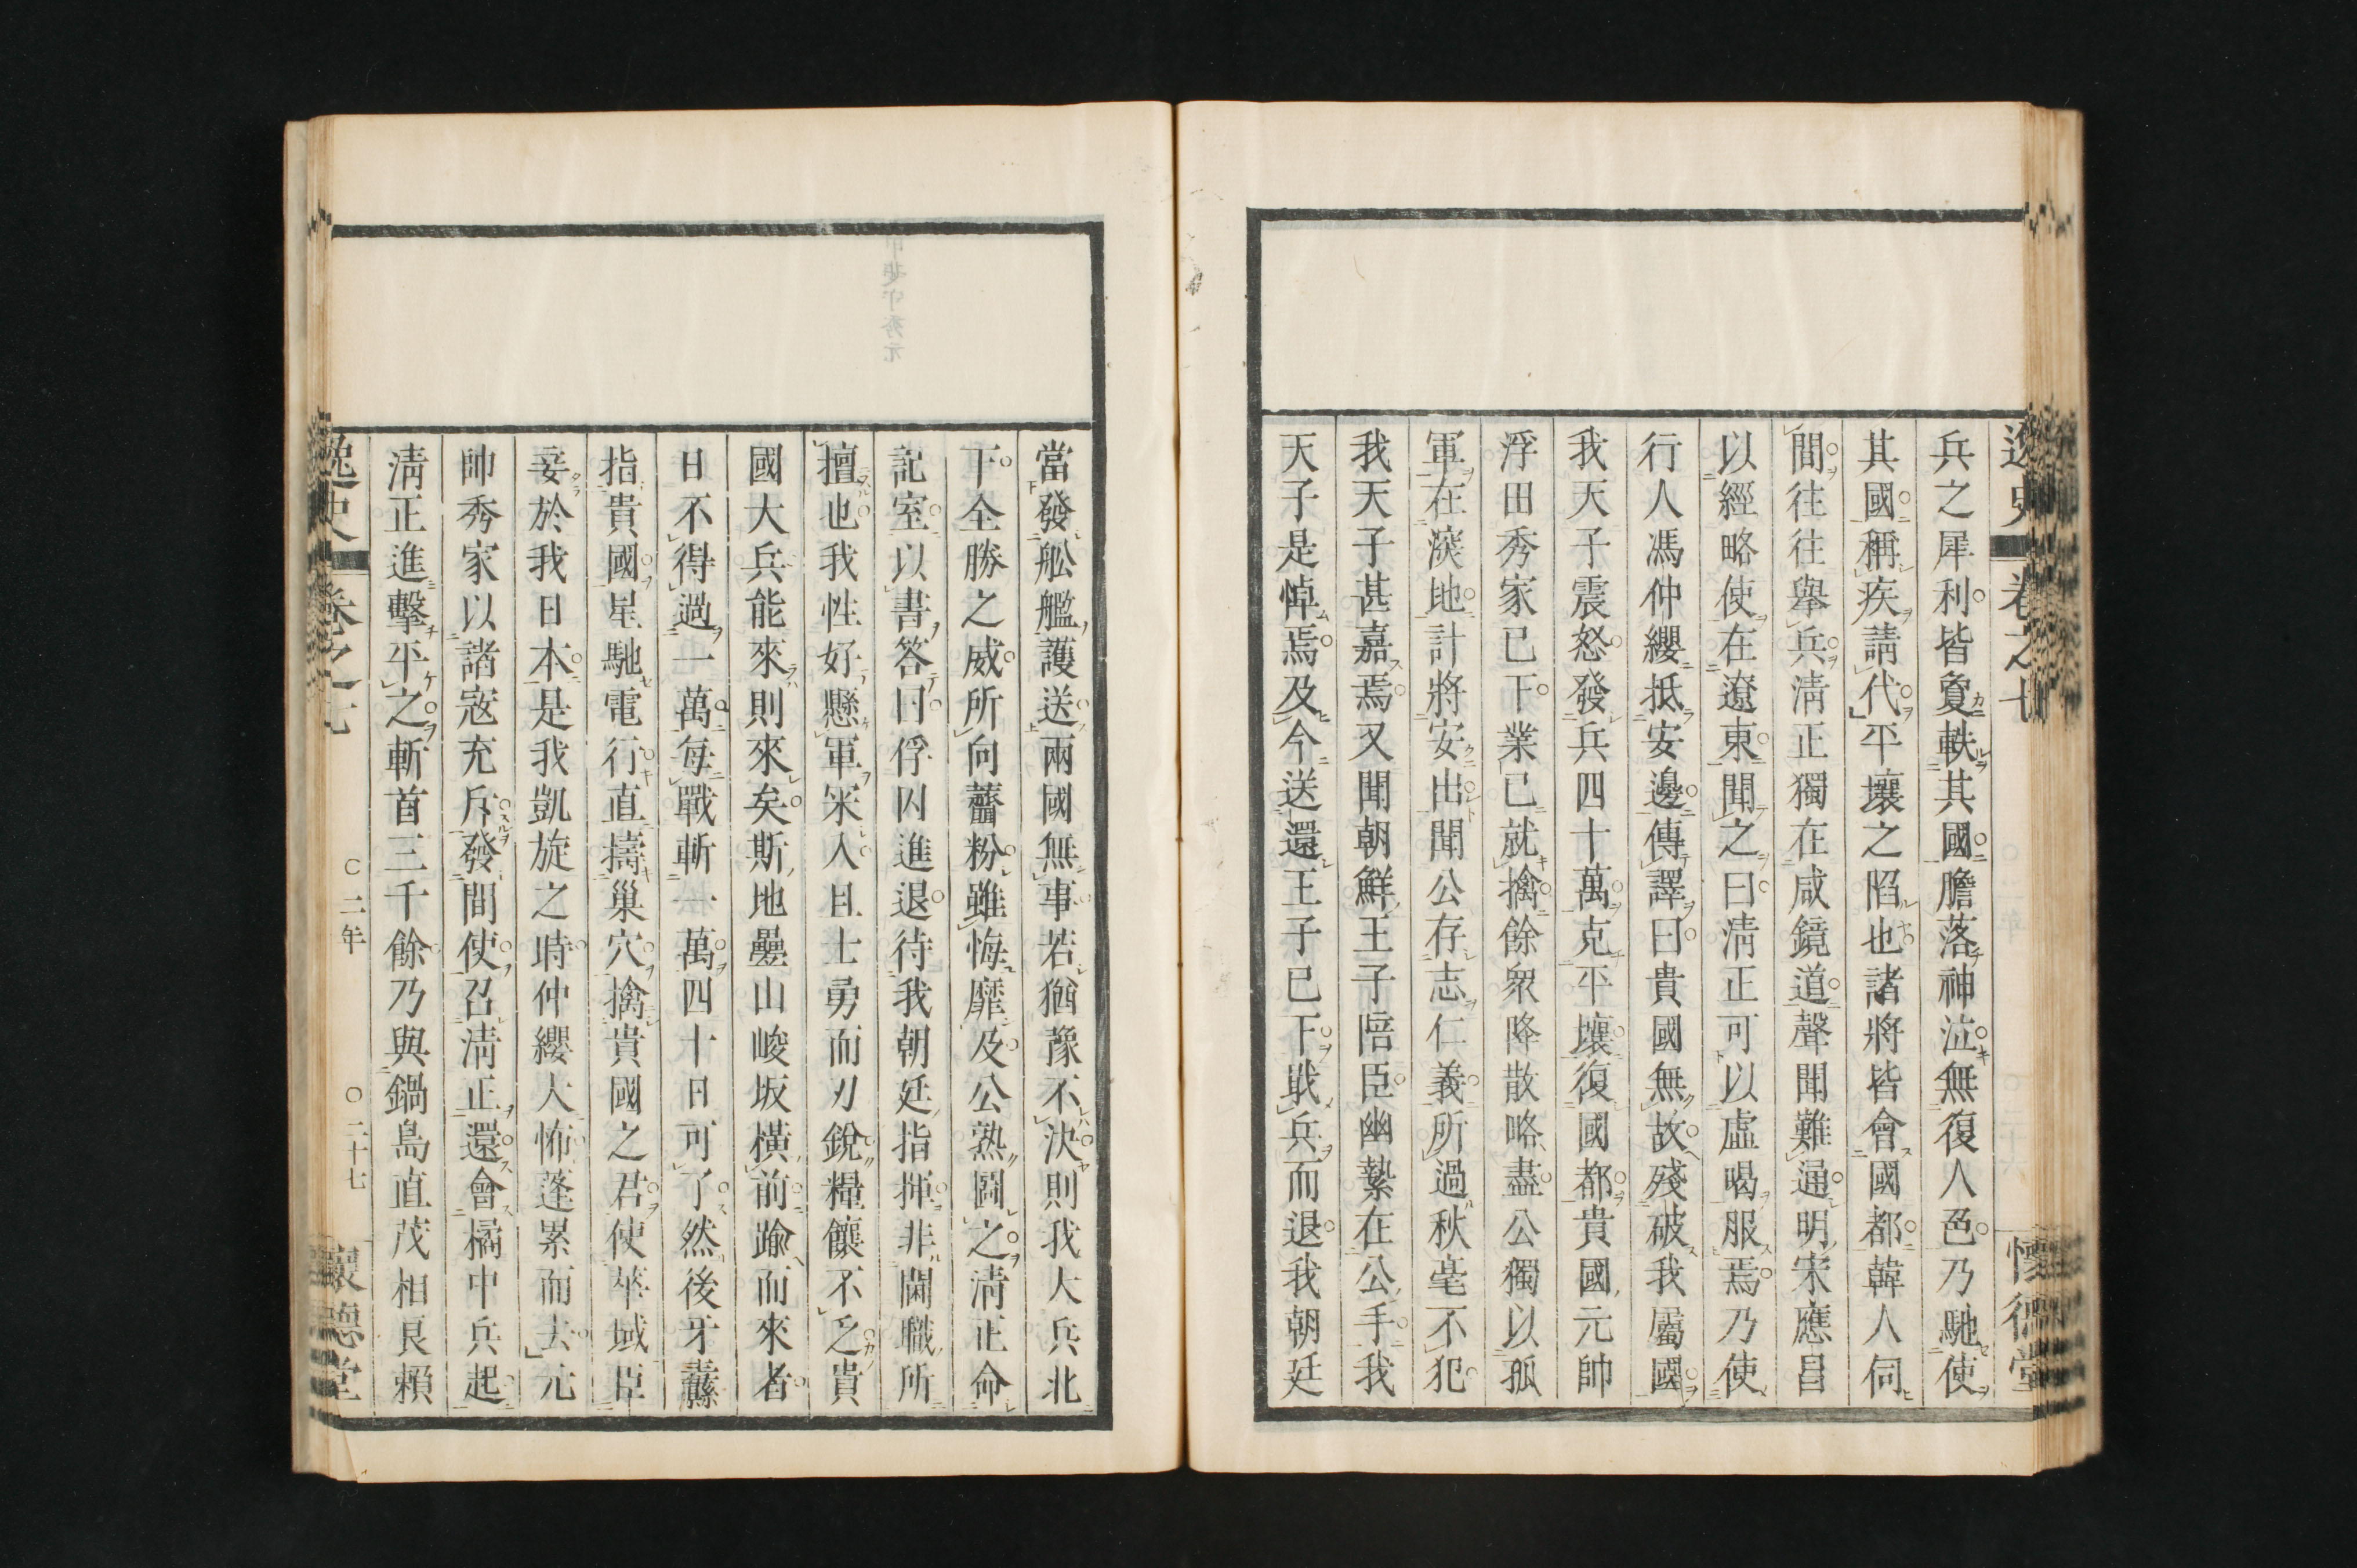 兵之犀利皆敻軼其國膽落神泣無復人色乃馳使
其國稱疾請代平壤之陷也諸將皆會國都韓人伺
間往往擧兵淸正獨在咸鏡道聲聞難通明宋應昌
以經略使在遼東聞之曰淸正可以虛喝服焉乃使
行人馮仲纓抵安邊傳譯曰貴國無故殘破我屬國
我天子震怒發兵四十萬克平壤復國都貴國元帥
浮田秀家已下業已就擒餘衆降散略盡公獨以孤
軍在深地計將安出聞公存志仁義所過秋毫不犯
我天子甚嘉焉又聞朝鮮王子陪臣幽縶在公手我
天子是悼焉及今送還王子已下戢兵而退我朝廷
當發舩艦護送兩國無事若猶豫不決則我大兵北
下全勝之威所向虀粉雖悔靡及公熟圖之淸正命
記室以書答曰俘囚進退待我朝廷指揮非閫職所
擅也我性好懸軍罙入且士勇而刃銳糧饟不乏貴
國大兵能來則來矣斯地壘山峻坂橫前踰而來者
日不得過一萬每戰斬一萬四十日可了然後牙纛
指貴國星馳電行直擣巢穴擒貴國之君使萃域臣
妾於我日本是我凱旋之時仲纓大怖蓬累而去元
帥秀家以諸寇充斥發間使召淸正還會橘中兵起
淸正進擊平之斬首三千餘乃與鍋島直茂相良賴
逸史 卷之七 二年 二十七 懷德堂